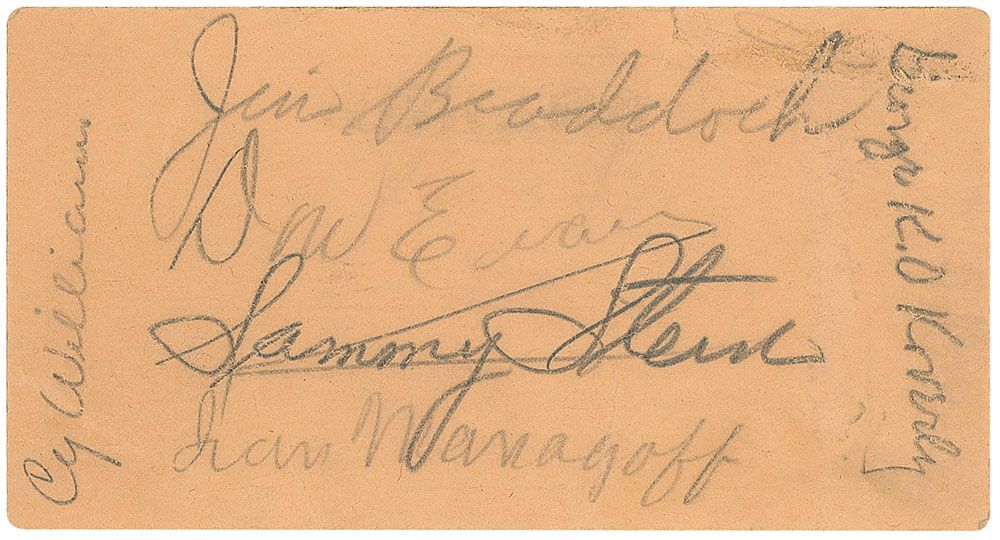 Jim Braddock
Evans
Sammy Stein
Ivan Managoff
Cy Williams
George K.O Koverly